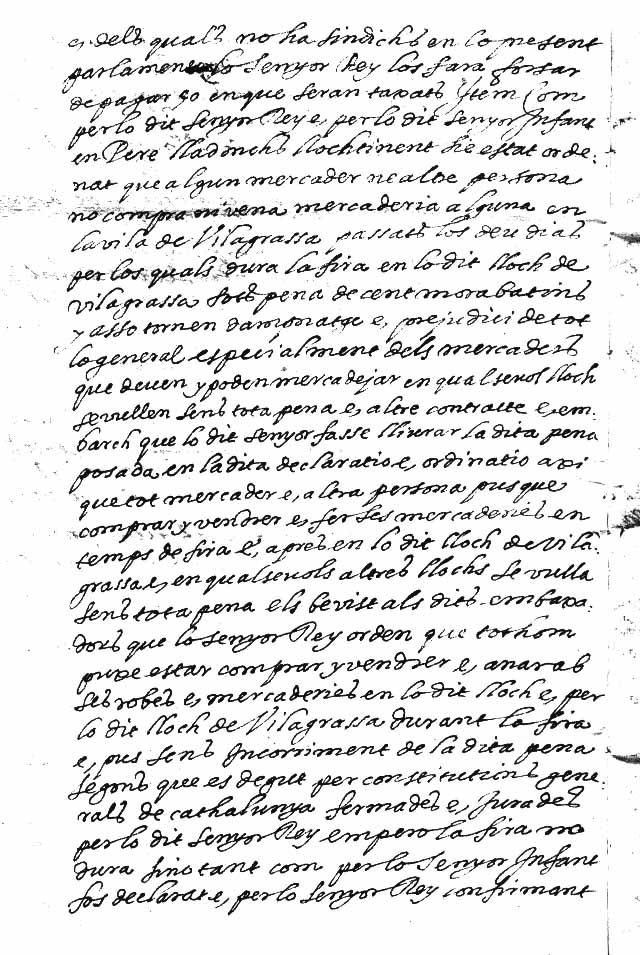 e, dels quals no ha sindichs en lo present
parlament lo Senyor Rey los fara forsar
de pagar ço en que seran taxats Item Com
per lo dit Senyor Rey e, per lo dit Senyor Infant
en Pere llochtinent sie estat orde-
nat que algun mercader ne altre persona
no compra ni vena mercaderia alguna en
la vila de Vilagrassa passats los deu dias
per los quals dura la fira en lo dit lloch de
vilagrassa sots pena de cent morabatins
y asso torne en damonatge e, prejudici de tot
lo general especialment dels mercaders
que deuen y poden mercadejar en qualsevol lloch
se vullen sens tota pena e, altre contraste e, em-
barch que lo dit Senyor fasse lliurar la dita pena
posada en la dita declaratio e, ordinatio axi
que tot mercader e, altra persona pusque
comprar y vendrer e, fer ses mercaderies en
temps de fira e, apres en lo dit lloch de Vila-
grassa e, en qualsevols altres llochs se vulla
sens tota pena els be vist als dits embaxa-
dors que lo Senyor Rey orden que tothom
puxe estar comprar y vendrer e, anar ab
ses robes e, mercaderies en lo dit lloch e, per
lo dit lloch de Vilagrassa durant la fira
e, pus sens Incorriment de la dita pena
segons que es degut per constitutions gene-
rals de cathalunya fermades e, Jurades
per lo dit Senyor Rey empero la fira no
dura sino tant com per lo Senyor Infant
fos declarat e, per lo Senyor Rey confirmant